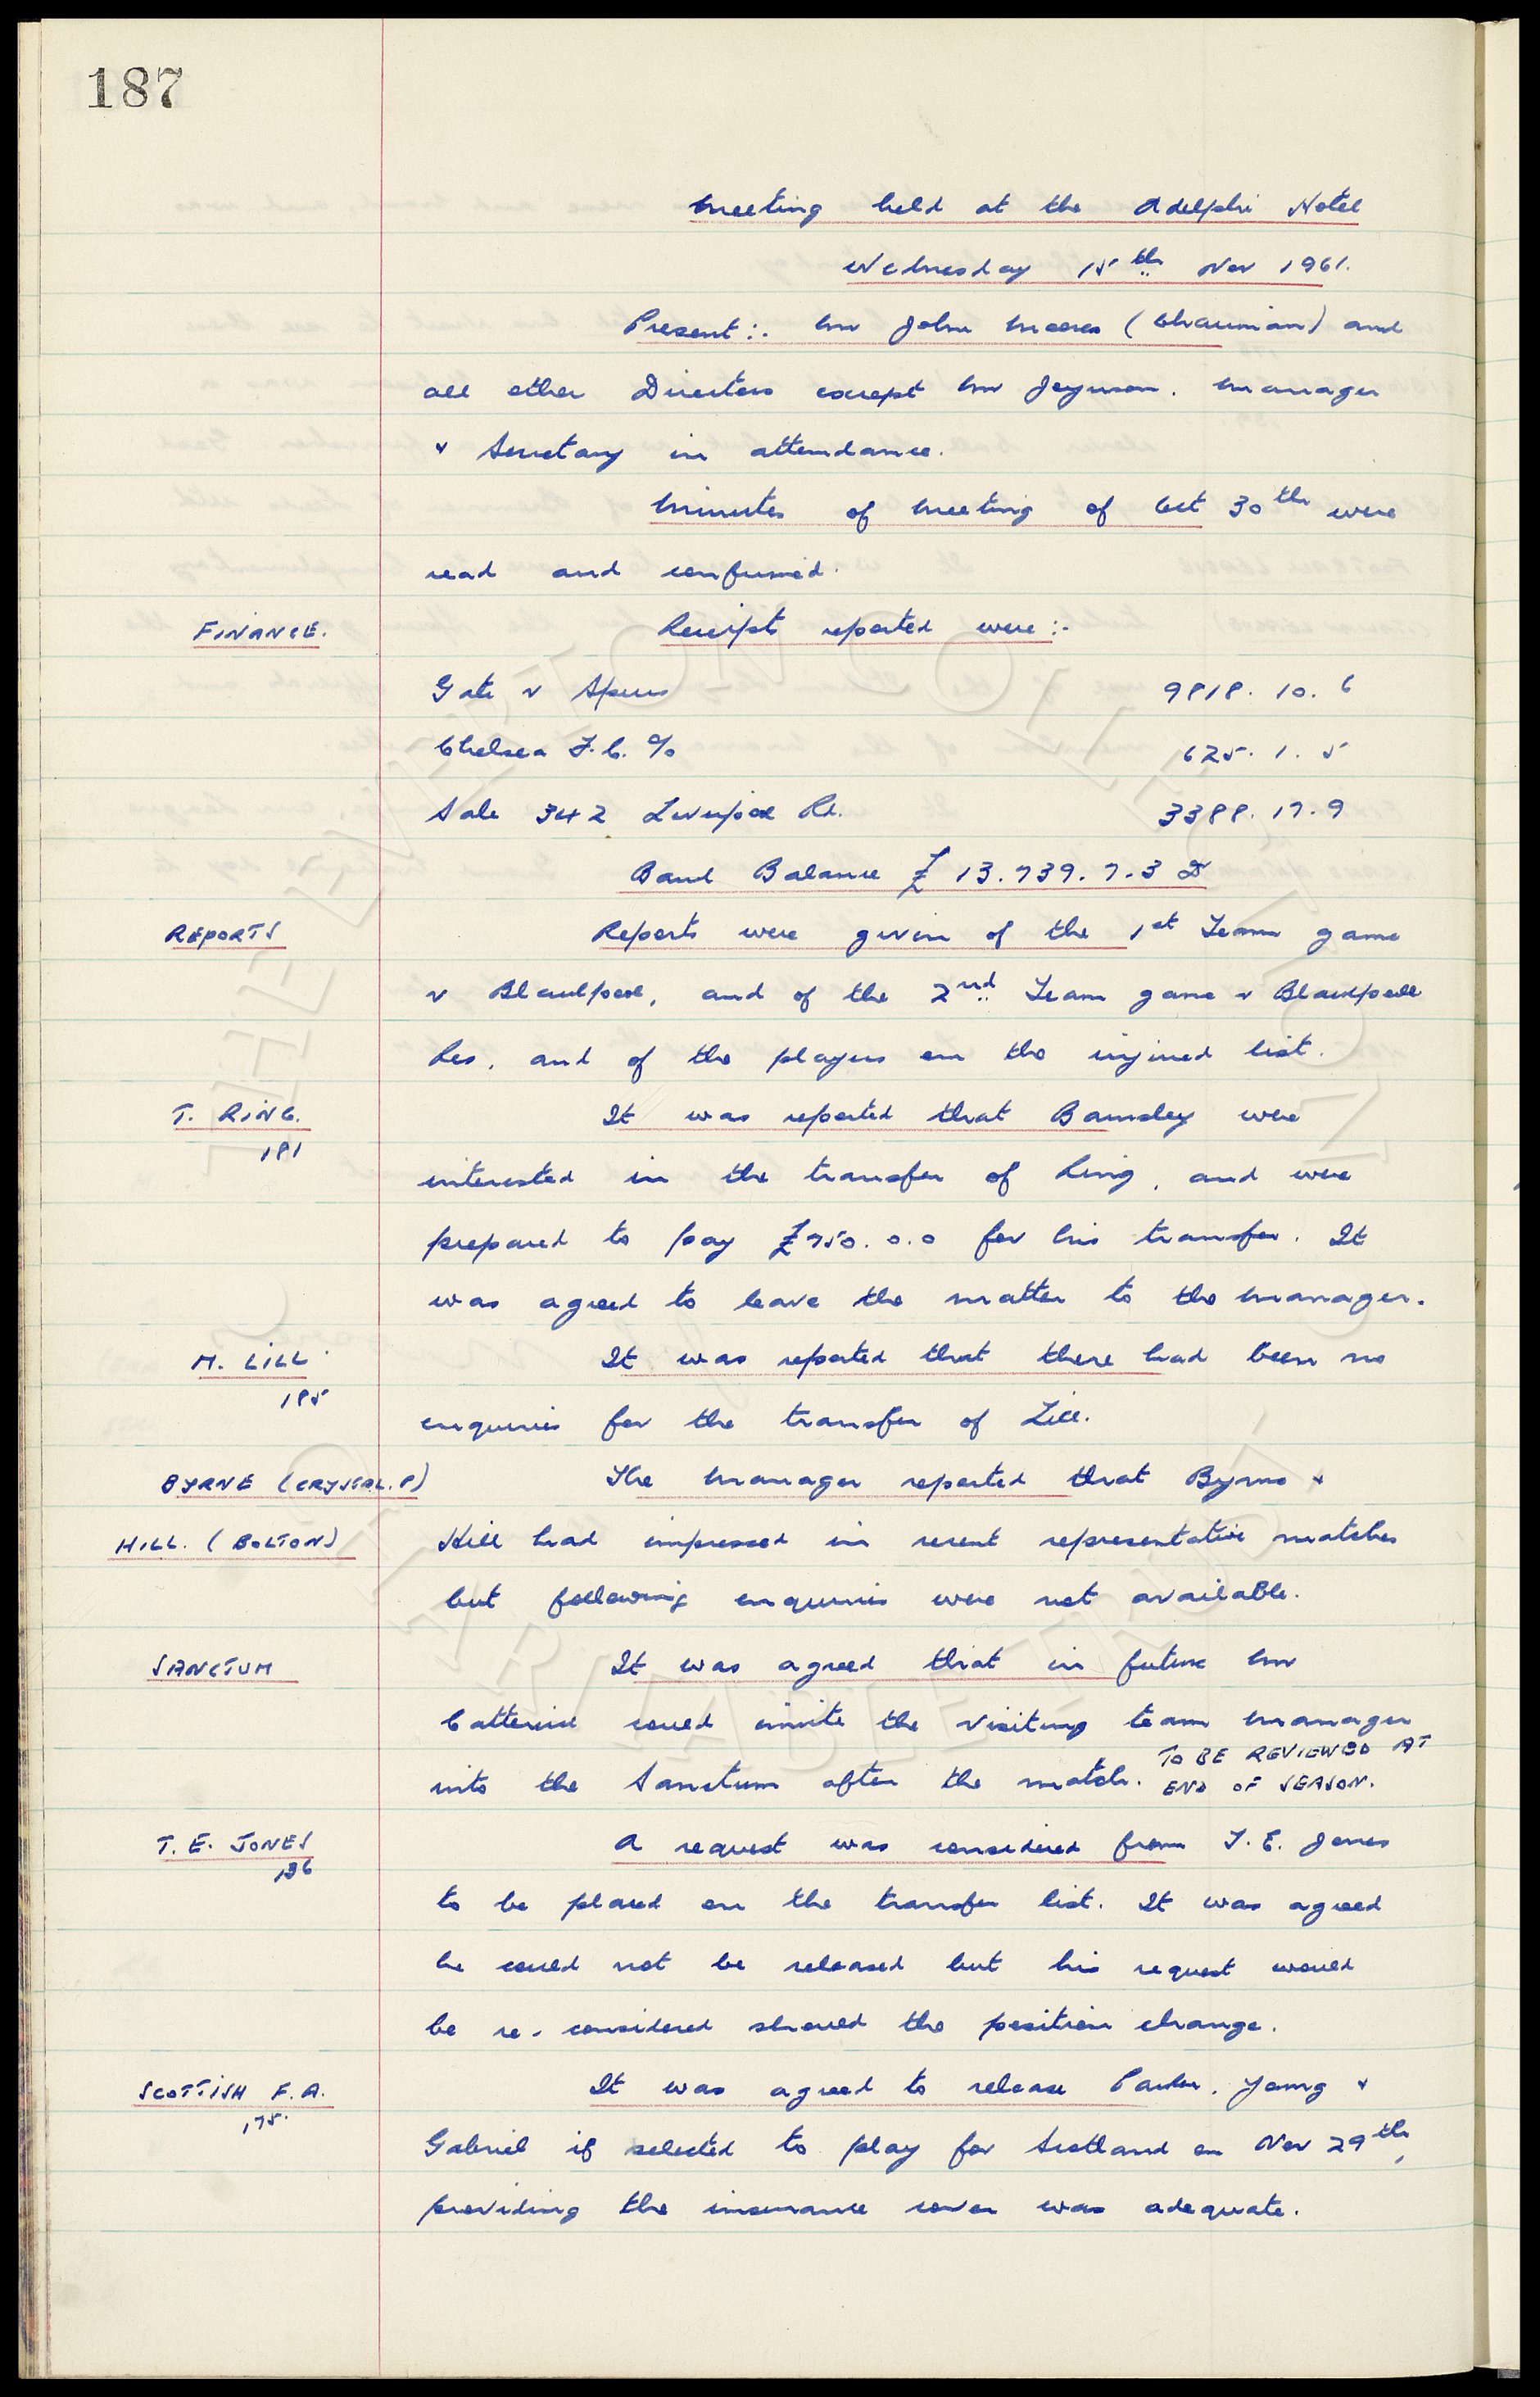 187
Meeting held at the Adelphi Hotel
Wednesday 15th Nov 1961.
Present :. Mr John Moores (Chairman) and
all other Directors except Mr Jeynson. Manager
& Secretary in attendance.
Minutes of Meeting of Oct 30th were
read and confirmed.
FINANCE. Receipts reported were :-
Gate v Spurs 9818. 10. 6
Chelsea F.C. % 625. 1. 5
Sale 342 Liverpool Rd. 3388. 17. 9
Bank Balance £ 13.739. 7. 3 Dr
REPORTS Reports were given of the 1st Team game
v Blackpool, and of the 2nd Team game v Blackpool
Res, and of the players on the injured list.
T. RING. It was reported that Barnsley were
181
interested in the transfer of Ring, and were
prepared to pay £750. 0. 0 for his transfer. It
was agreed to leave the matter to the Manager.
M. LILL. It was reported that there had been no
185
enquiries for the transfer of Lill.
BYRNE (CRYSTAL. P) The Manager reported that Byrne &
HILL. (BOLTON) Hill had impressed in recent representative matches
but following enquiries were not available.
SANCTUM It was agreed that in future Mr
Catterick could invite the visiting team manager
into the Sanctum after the match. TO BE REVIEWED AT
END OF SEASON.
T. E. JONES A request was considered from T. E. Jones
186
to be placed on the transfer list. It was agreed
he could not be released but his request would
be re-considered should the position change.
SCOTTISH F.A. It was agreed to release Parker, Young &
175.
Gabriel if selected to play for Scotland on Nov 29th,
providing the insurance cover was adequate.